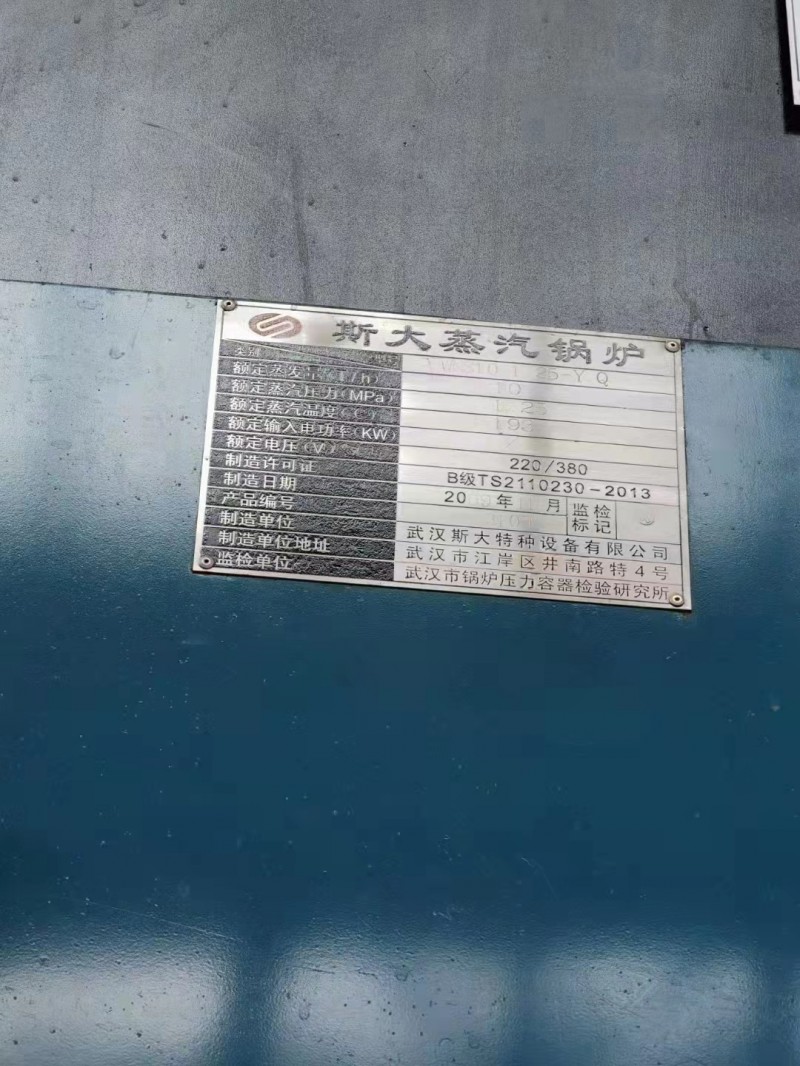 斯大蒸汽锅炉
类别
额定蒸发量(T/h)
额定蒸汽压力(MPa)
额定蒸汽温度(℃)
额定输入电功率(KW)
额定电压(V) 220/380
制造许可证 B级TS2110230-2013
制造日期 20 年 月 监检标记
产品编号
制造单位 武汉斯大特种设备有限公司
制造单位地址 武汉市江岸区井南路特4号
监检单位 武汉市锅炉压力容器检验研究所